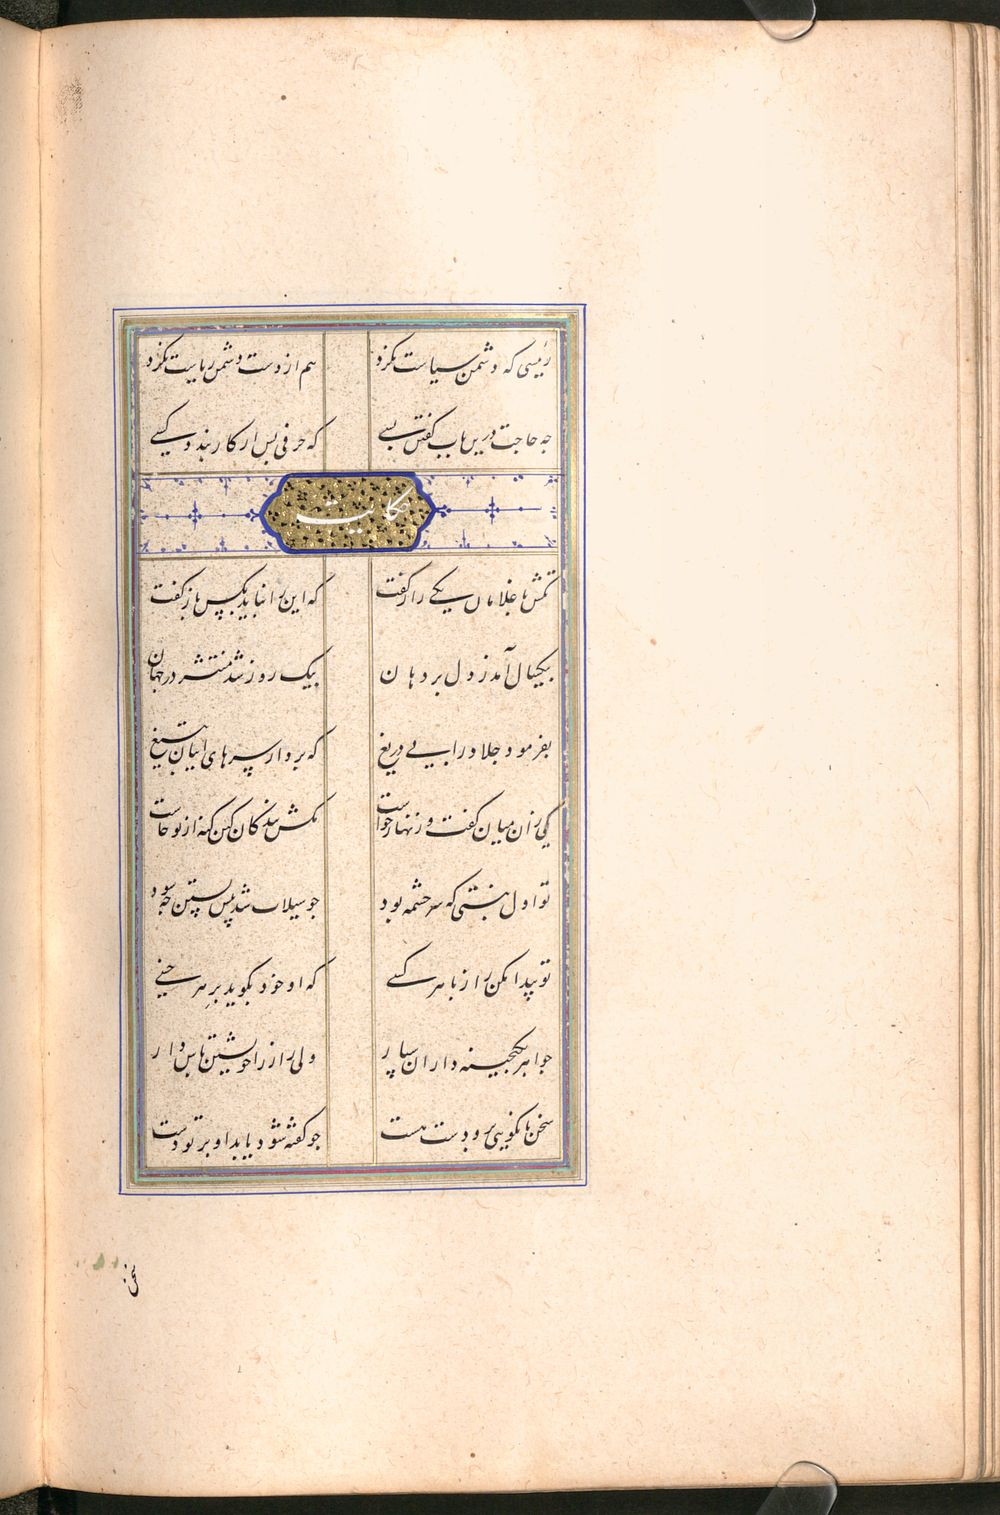 رئیسی که دشمن سیاست نکرد هم از دست دشمن ریاست نکرد
چه حاجت درین باب گفتن بسی که حرفی بس ار کار بندد کسی
حکایت
تکش با غلامان یکی راز گفت که این را نباید بکس باز گفت
بیکسال آمد ز دل بر دهان بیک روز شد منتشر در جهان
بفرمود جلاد را بی دریغ که بردار سرهای اینان بتیغ
یکی زان میان گفت و زنهار خواست مکش بندکان کین کنه از تو خاست
تو اول نبستی که سرچشمه بود چو سیلاب شد پیش بستن چه سود
تو پیدا مکن راز با هر کسی که او خود بکوید بر هر خسی
جواهر بکنجینه داران سپار ولی راز را خویشتن پاس دار
سخن تا نکویی برو دست هست چو کفته شود یابد او بر تو دست
سخن